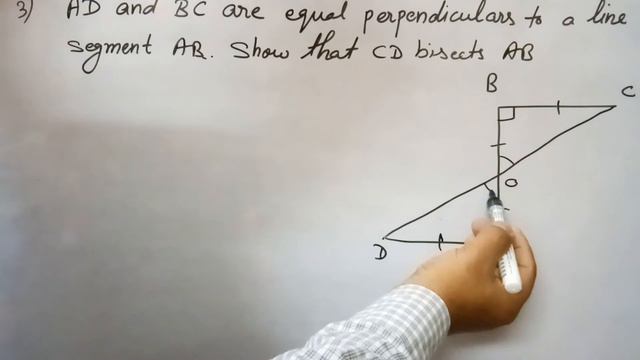 3) AD and BC are equal perpendiculars to a line
segment AB. Show that CD bisects AB
B
C
O
D